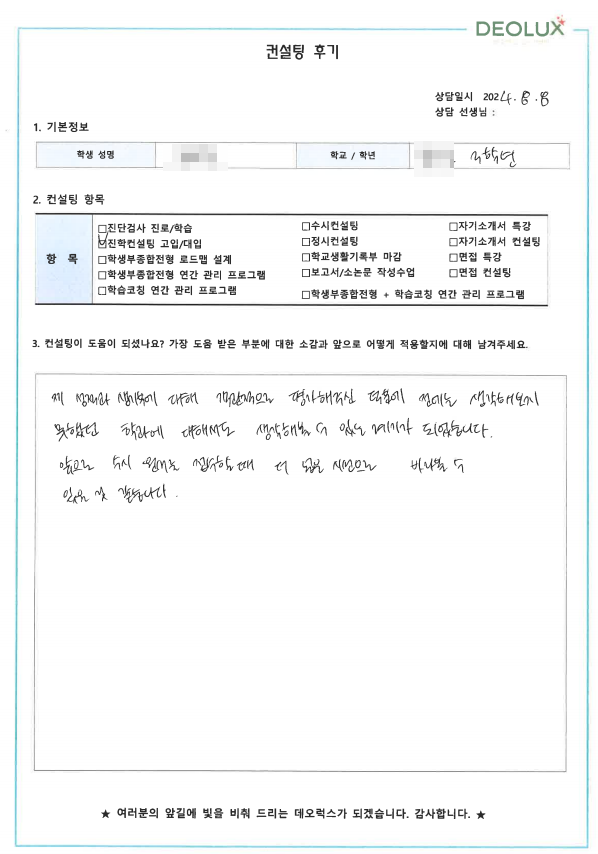 DEOLUX
컨설팅 후기
상담일시 2024.8.8
상담 선생님 :
1. 기본정보
학생 성명 학교 / 학년 학년
2. 컨설팅 항목
항 목
□진단검사 진로/학습 □수시컨설팅 □자기소개서 특강
☑진학컨설팅 고입/대입 □정시컨설팅 □자기소개서 컨설팅
□학생부종합전형 로드맵 설계 □학교생활기록부 마감 □면접 특강
□학생부종합전형 연간 관리 프로그램 □보고서/소논문 작성수업 □면접 컨설팅
□학습코칭 연간 관리 프로그램 □학생부종합전형 + 학습코칭 연간 관리 프로그램
3. 컨설팅이 도움이 되셨나요? 가장 도움 받은 부분에 대한 소감과 앞으로 어떻게 적용할지에 대해 남겨주세요.
제 성적과 생기부에 대해 객관적으로 평가해주신 덕분에 전에는 생각해보지
못했던 학과에 대해서도 생각해볼 수 있는 계기가 되었습니다.
앞으로 수시 원서를 접수할 때 더 넓은 시선으로 바라볼 수
있을 것 같습니다.
★ 여러분의 앞길에 빛을 비춰 드리는 데오럭스가 되겠습니다. 감사합니다. ★